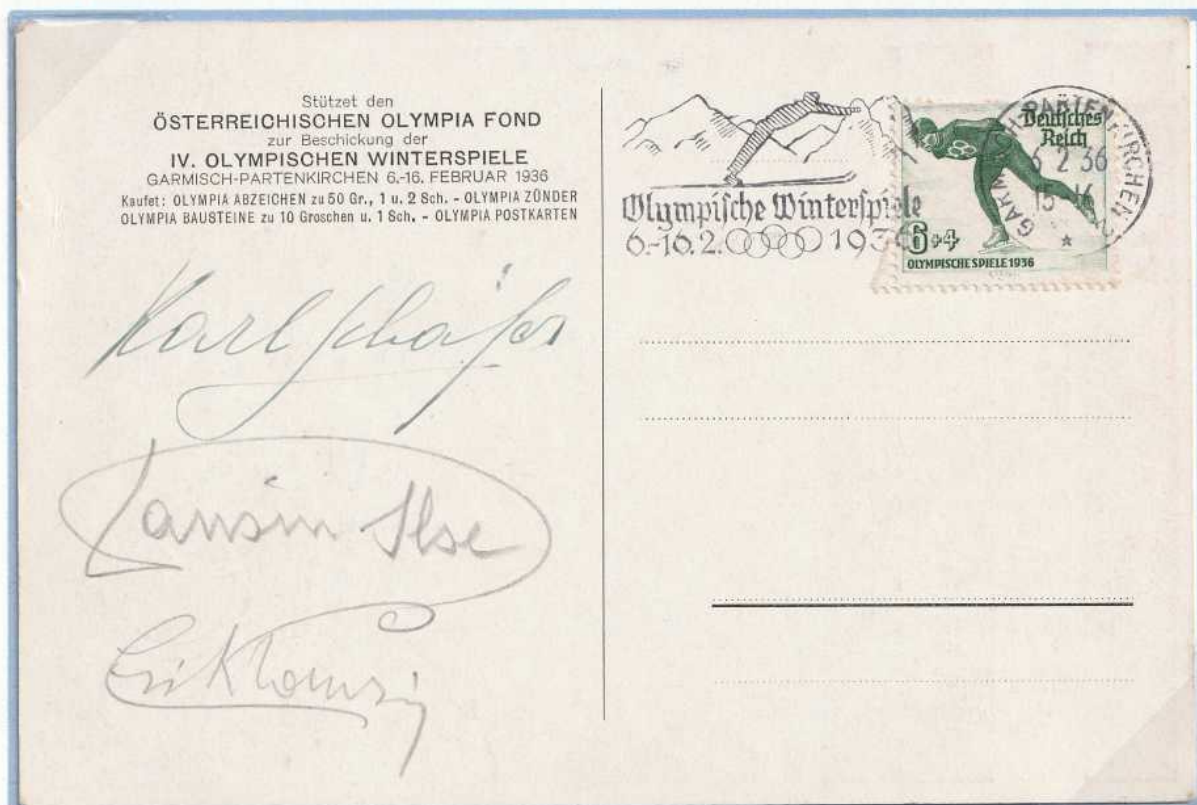 Stützet den
ÖSTERREICHISCHEN OLYMPIA FOND
zur Beschickung der
IV. OLYMPISCHEN WINTERSPIELE
GARMISCH-PARTENKIRCHEN 6.-16. FEBRUAR 1936
Kaufet: OLYMPIA ABZEICHEN zu 50 Gr., 1 u. 2 Sch. - OLYMPIA ZÜNDER
OLYMPIA BAUSTEINE zu 10 Groschen u. 1 Sch. - OLYMPIA POSTKARTEN
Karl Schäfer
Pausin Ilse
Erik Pausin
Olympische Winterspiele
6.-16.2. 1936
Deutsches
Reich
6+4
OLYMPISCHE SPIELE 1936
GARMISCH-PARTENKIRCHEN 2
6 2 36
15-16